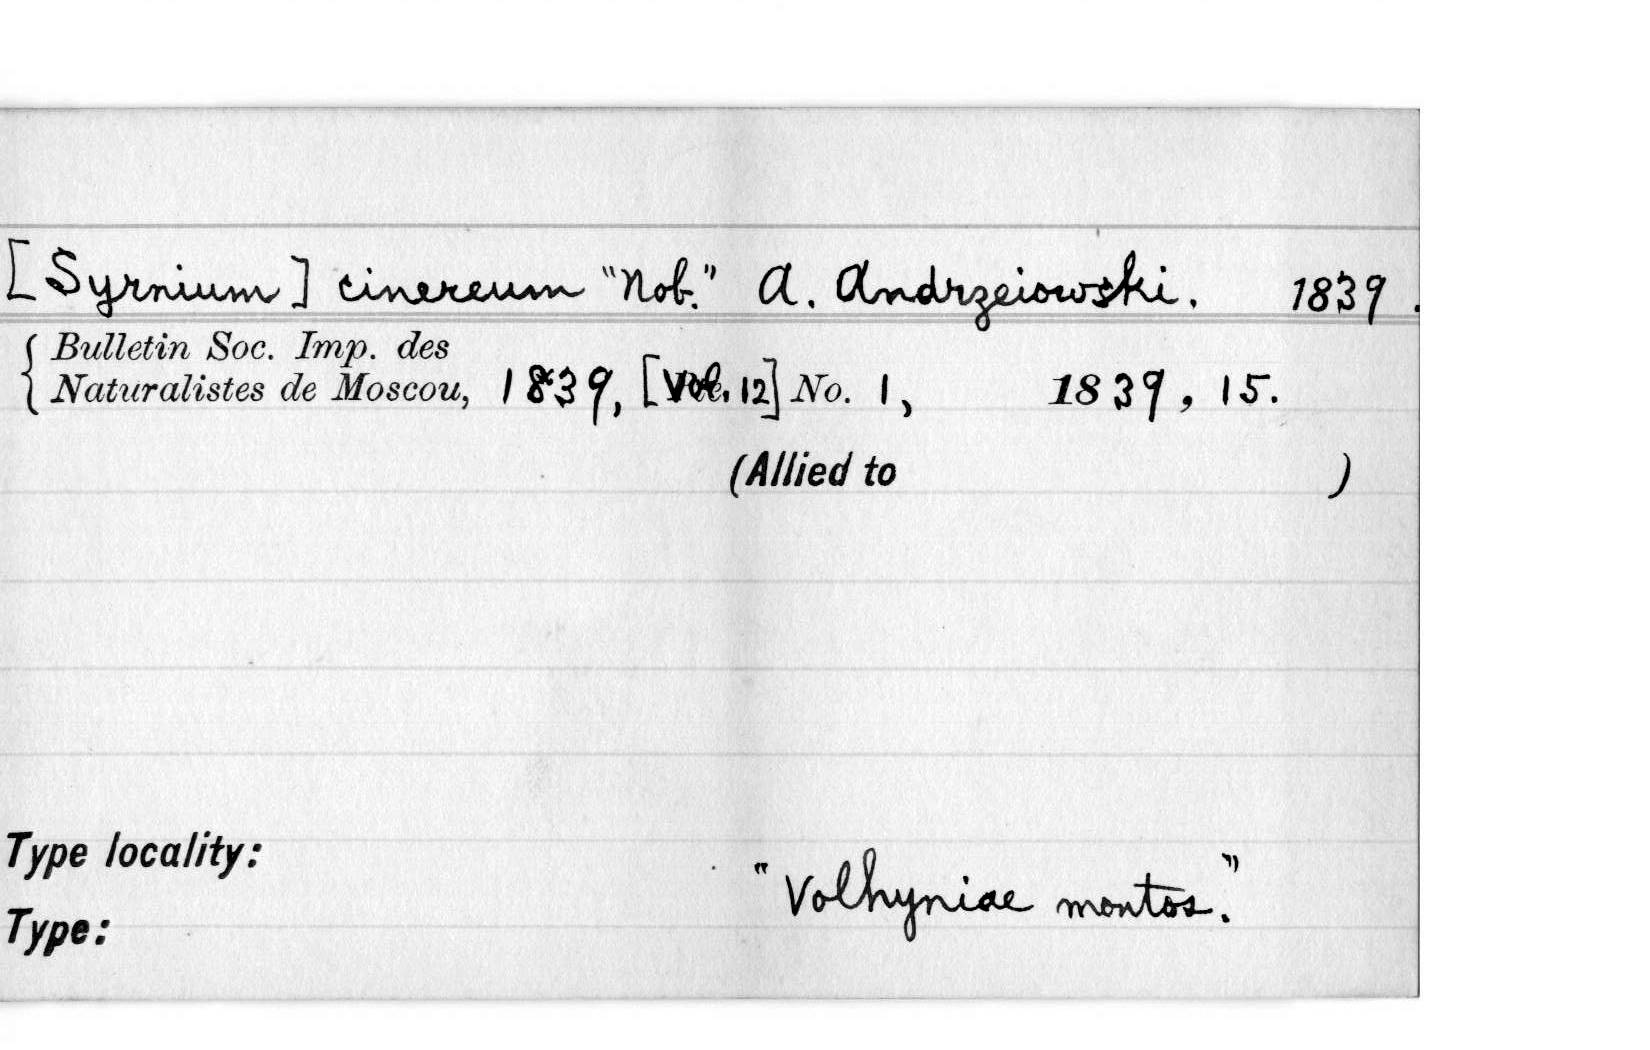 [Syrnium] cinereum "Nob." A. Andrzeiowski. 1839.
Bulletin Soc. Imp. des
Naturalistes de Moscou, 1839, [Vol. 12] No. 1, 1839, 15.
(Allied to )
Type locality:
"Volhyniae montos."
Type: